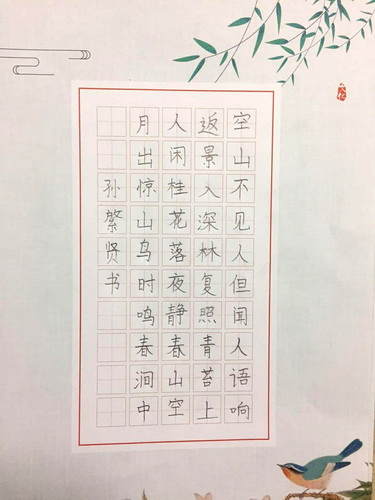 空山不见人但闻人语响
返景入深林复照青苔上
人闲桂花落夜静春山空
月出惊山鸟时鸣春涧中
孙繁贤书